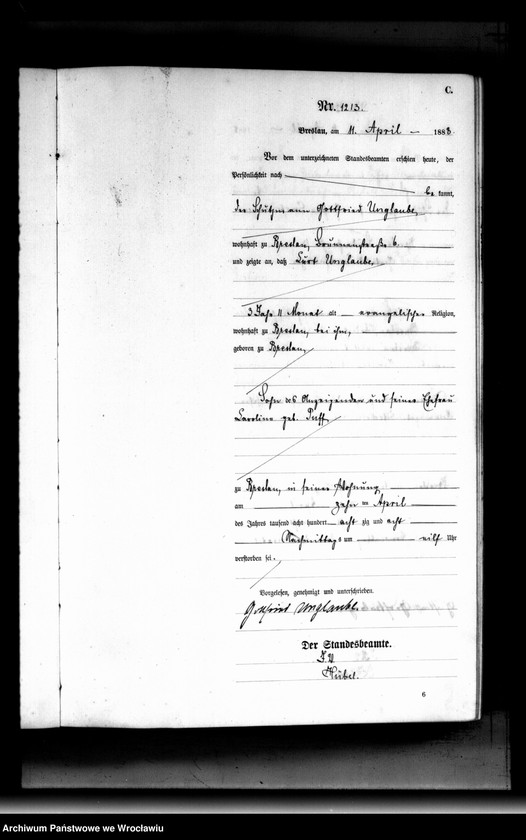 C.
Nr. 1213.
Breslau, am 11. April 1888
Vor dem unterzeichneten Standesbeamten erschien heute, der
Persönlichkeit nach
be kannt,
der Schutzmann Gottfried Unglaube,
wohnhaft zu Breslau, Brunnenstraße 6.
und zeigte an, daß Curt Unglaube,
3 Jahr 11 Monat alt evangelischer Religion,
wohnhaft zu Breslau, bei ihm,
geboren zu Breslau,
Sohn des Anzeigenden und seiner Ehefrau
Caroline geb. Puff,
zu Breslau, in seiner Wohnung,
am zehn ten April
des Jahres tausend acht hundert acht zig und acht
Nachmittags um eilf Uhr
verstorben sei.
Vorgelesen, genehmigt und unterschrieben.
Gottfried Unglaube.
Der Standesbeamte.
J. V.
Kübel.
6
Archiwum Państwowe we Wrocławiu